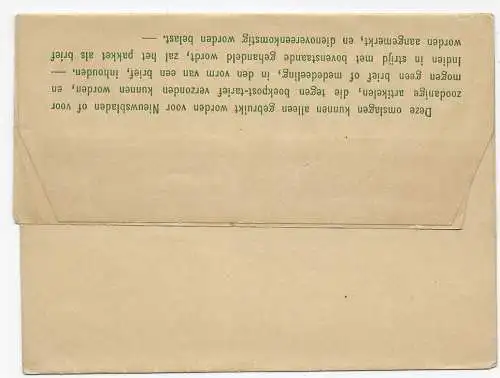 Deze omslagen kunnen alleen gebruikt worden voor Nieuwsbladen of voor
zoodanige artikelen, die tegen boekpost-tarief verzonden kunnen worden, en
mogen geen brief of mededeeling, in den vorm van een brief, inhouden. —
Indien in strijd met bovenstaande gehandeld wordt, zal het pakket als brief
worden aangemerkt, en dienovereenkomstig worden belast. —